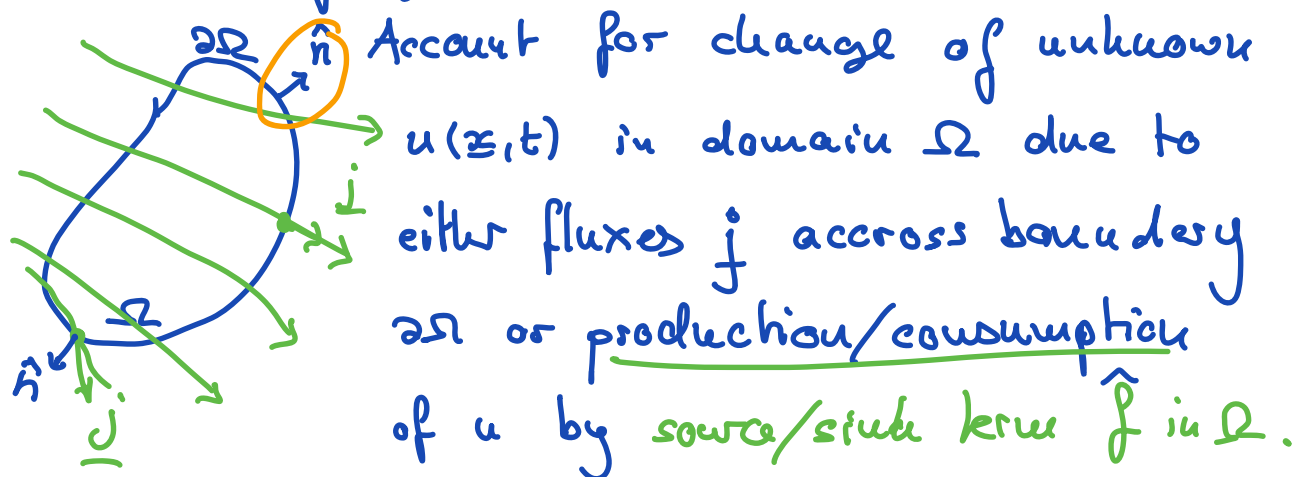 ∂Ω
n̂
Account for change of unknown
u(x̲,t) in domain Ω due to
j̲
either fluxes j̲ accross boundery
Ω
∂Ω or production/consumption
n̂
j̲
of u by source/sink term f̂ in Ω.